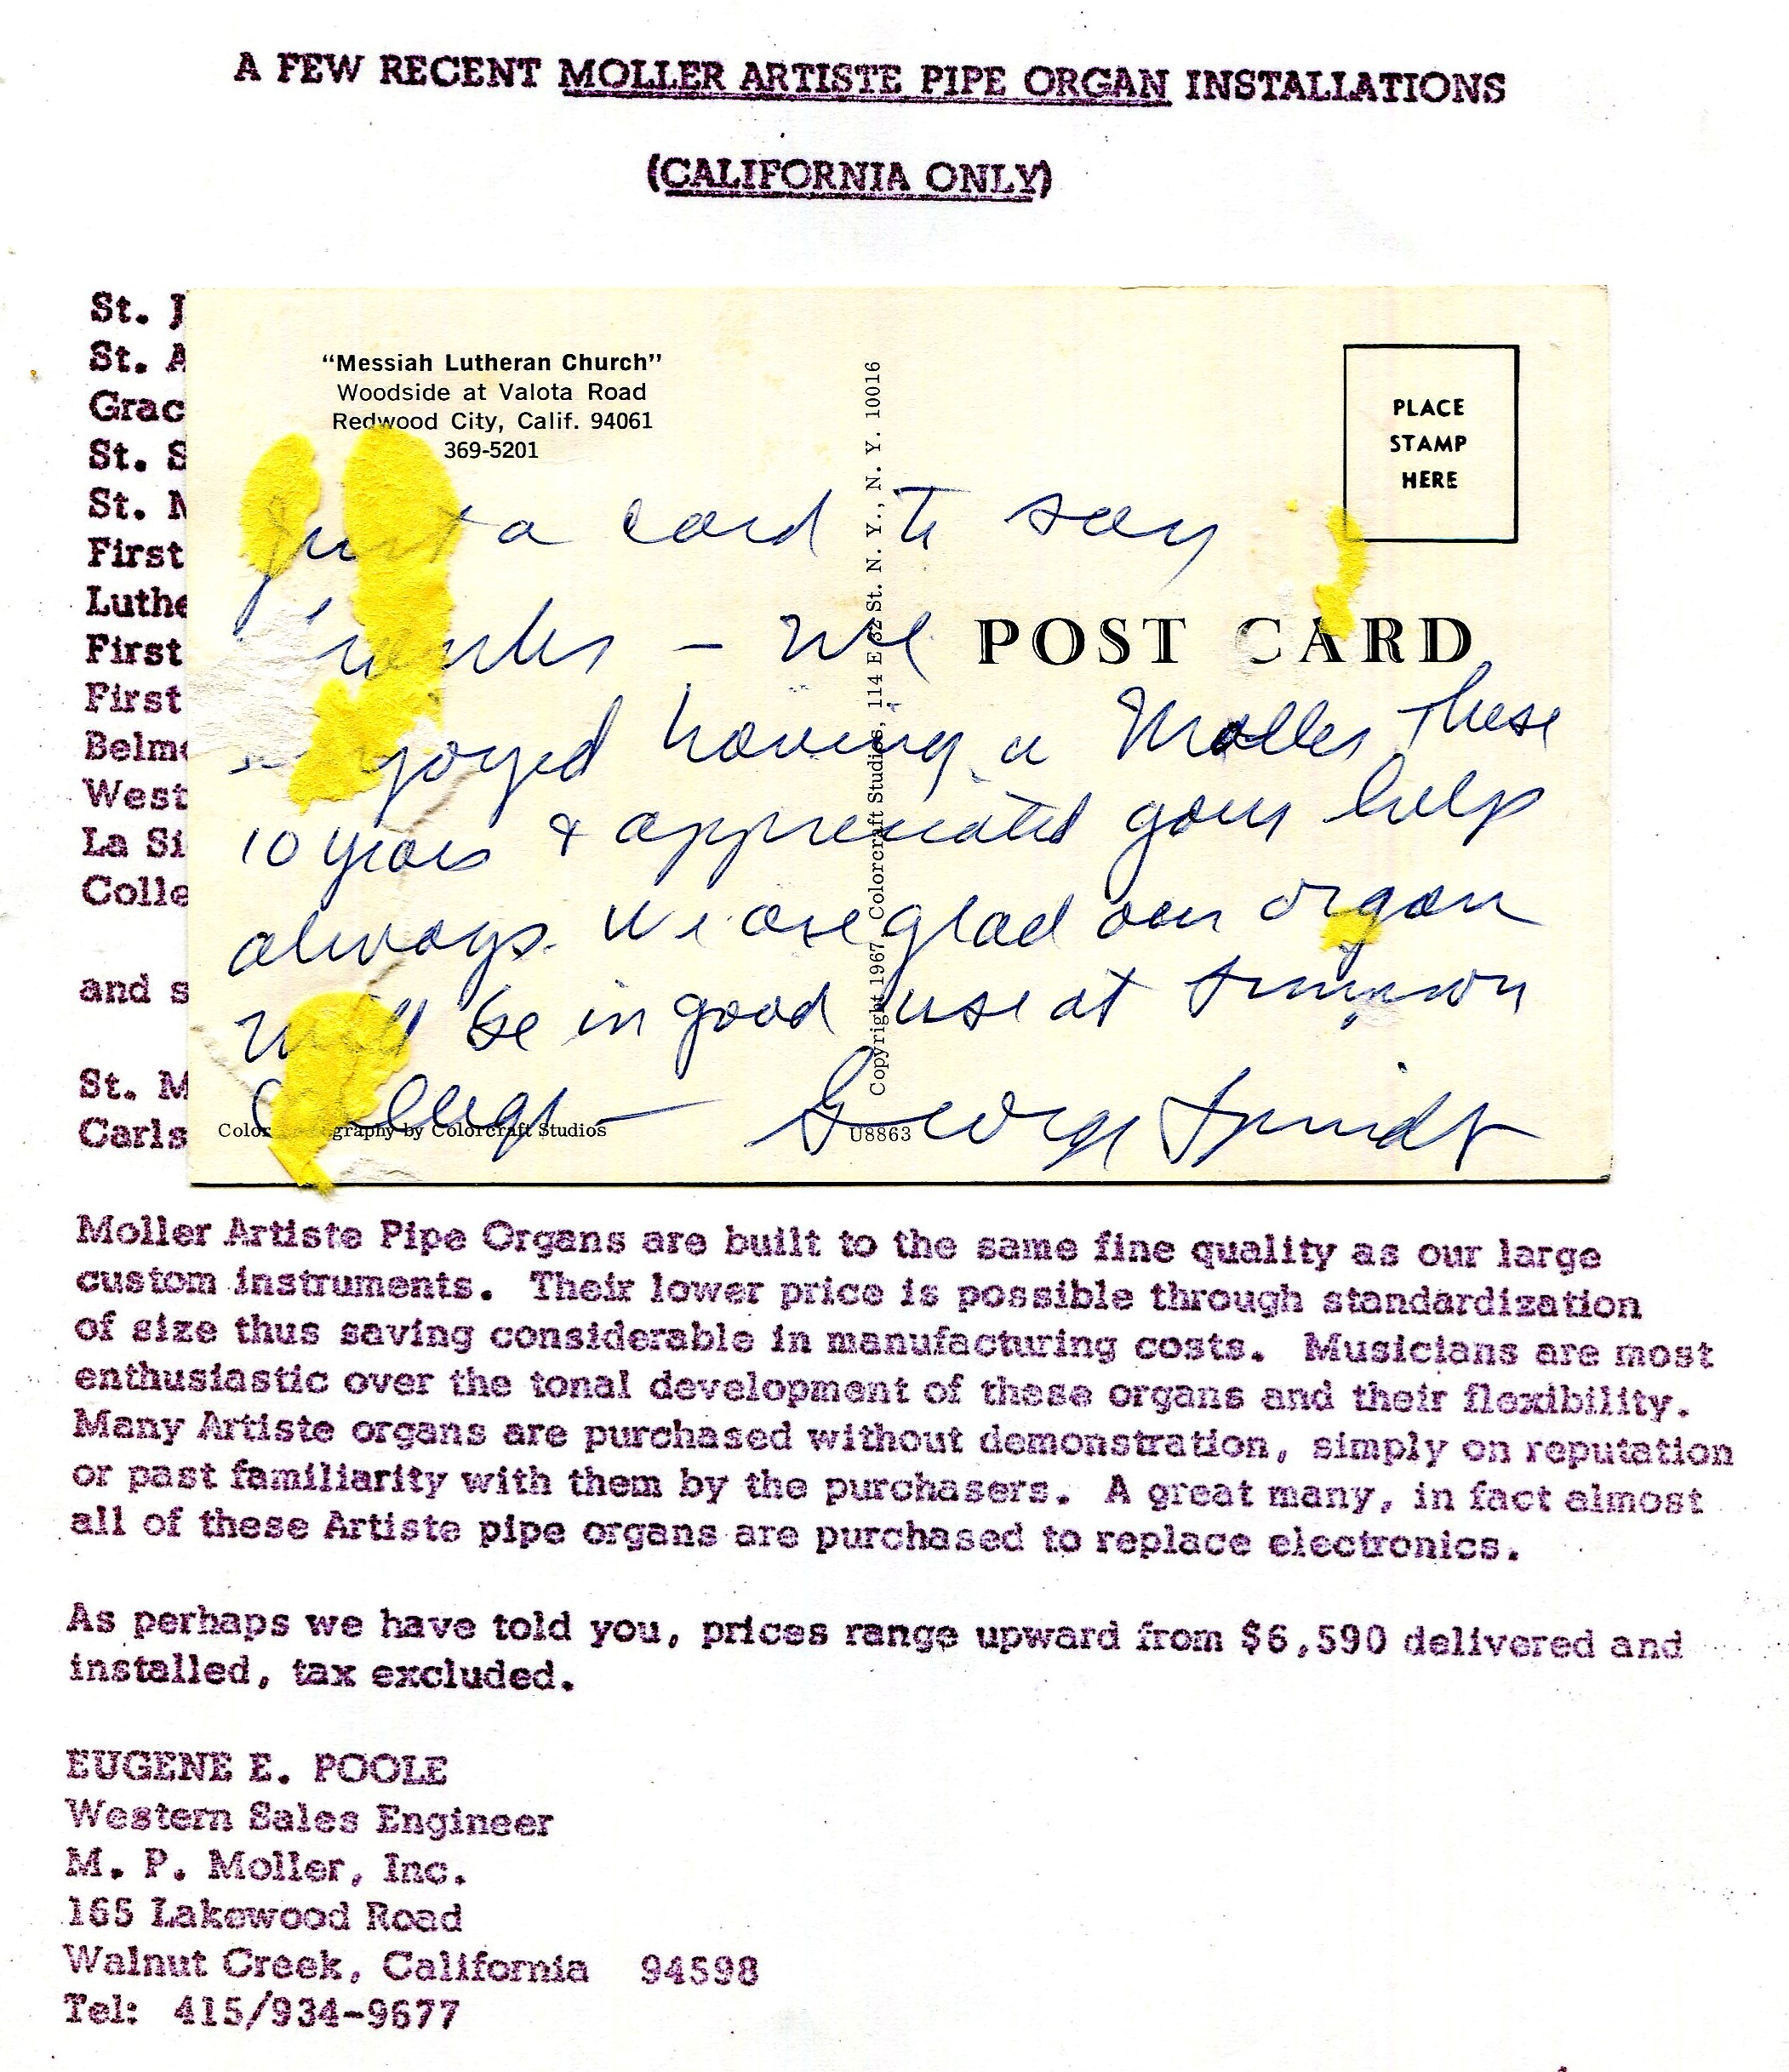 A FEW RECENT MOLLER ARTISTE PIPE ORGAN INSTALLATIONS
(CALIFORNIA ONLY)
St. J
St. A
Grac
St. S
St. N
First
Luthe
First
First
Belmo
West
La Si
Colle
and s
St. M
Carls
"Messiah Lutheran Church"
Woodside at Valota Road
Redwood City, Calif. 94061
369-5201
PLACE
STAMP
HERE
POST CARD
Copyright 1967 Colorcraft Studios, 114 E 32 St. N. Y., N. Y. 10016
Just a card to say
thanks – We
enjoyed having a Moller these
10 years & appreciated your help
always. We are glad our organ
will be in good use at Simpson
College – George
Color graphy by Colorcraft Studios
U8863
Moller Artiste Pipe Organs are built to the same fine quality as our large
custom instruments. Their lower price is possible through standardization
of size thus saving considerable in manufacturing costs. Musicians are most
enthusiastic over the tonal development of these organs and their flexibility.
Many Artiste organs are purchased without demonstration, simply on reputation
or past familiarity with them by the purchasers. A great many, in fact almost
all of these Artiste pipe organs are purchased to replace electronics.
As perhaps we have told you, prices range upward from $6,590 delivered and
installed, tax excluded.
EUGENE E. POOLE
Western Sales Engineer
M. P. Moller, Inc.
165 Lakewood Road
Walnut Creek, California 94598
Tel: 415/934-9677